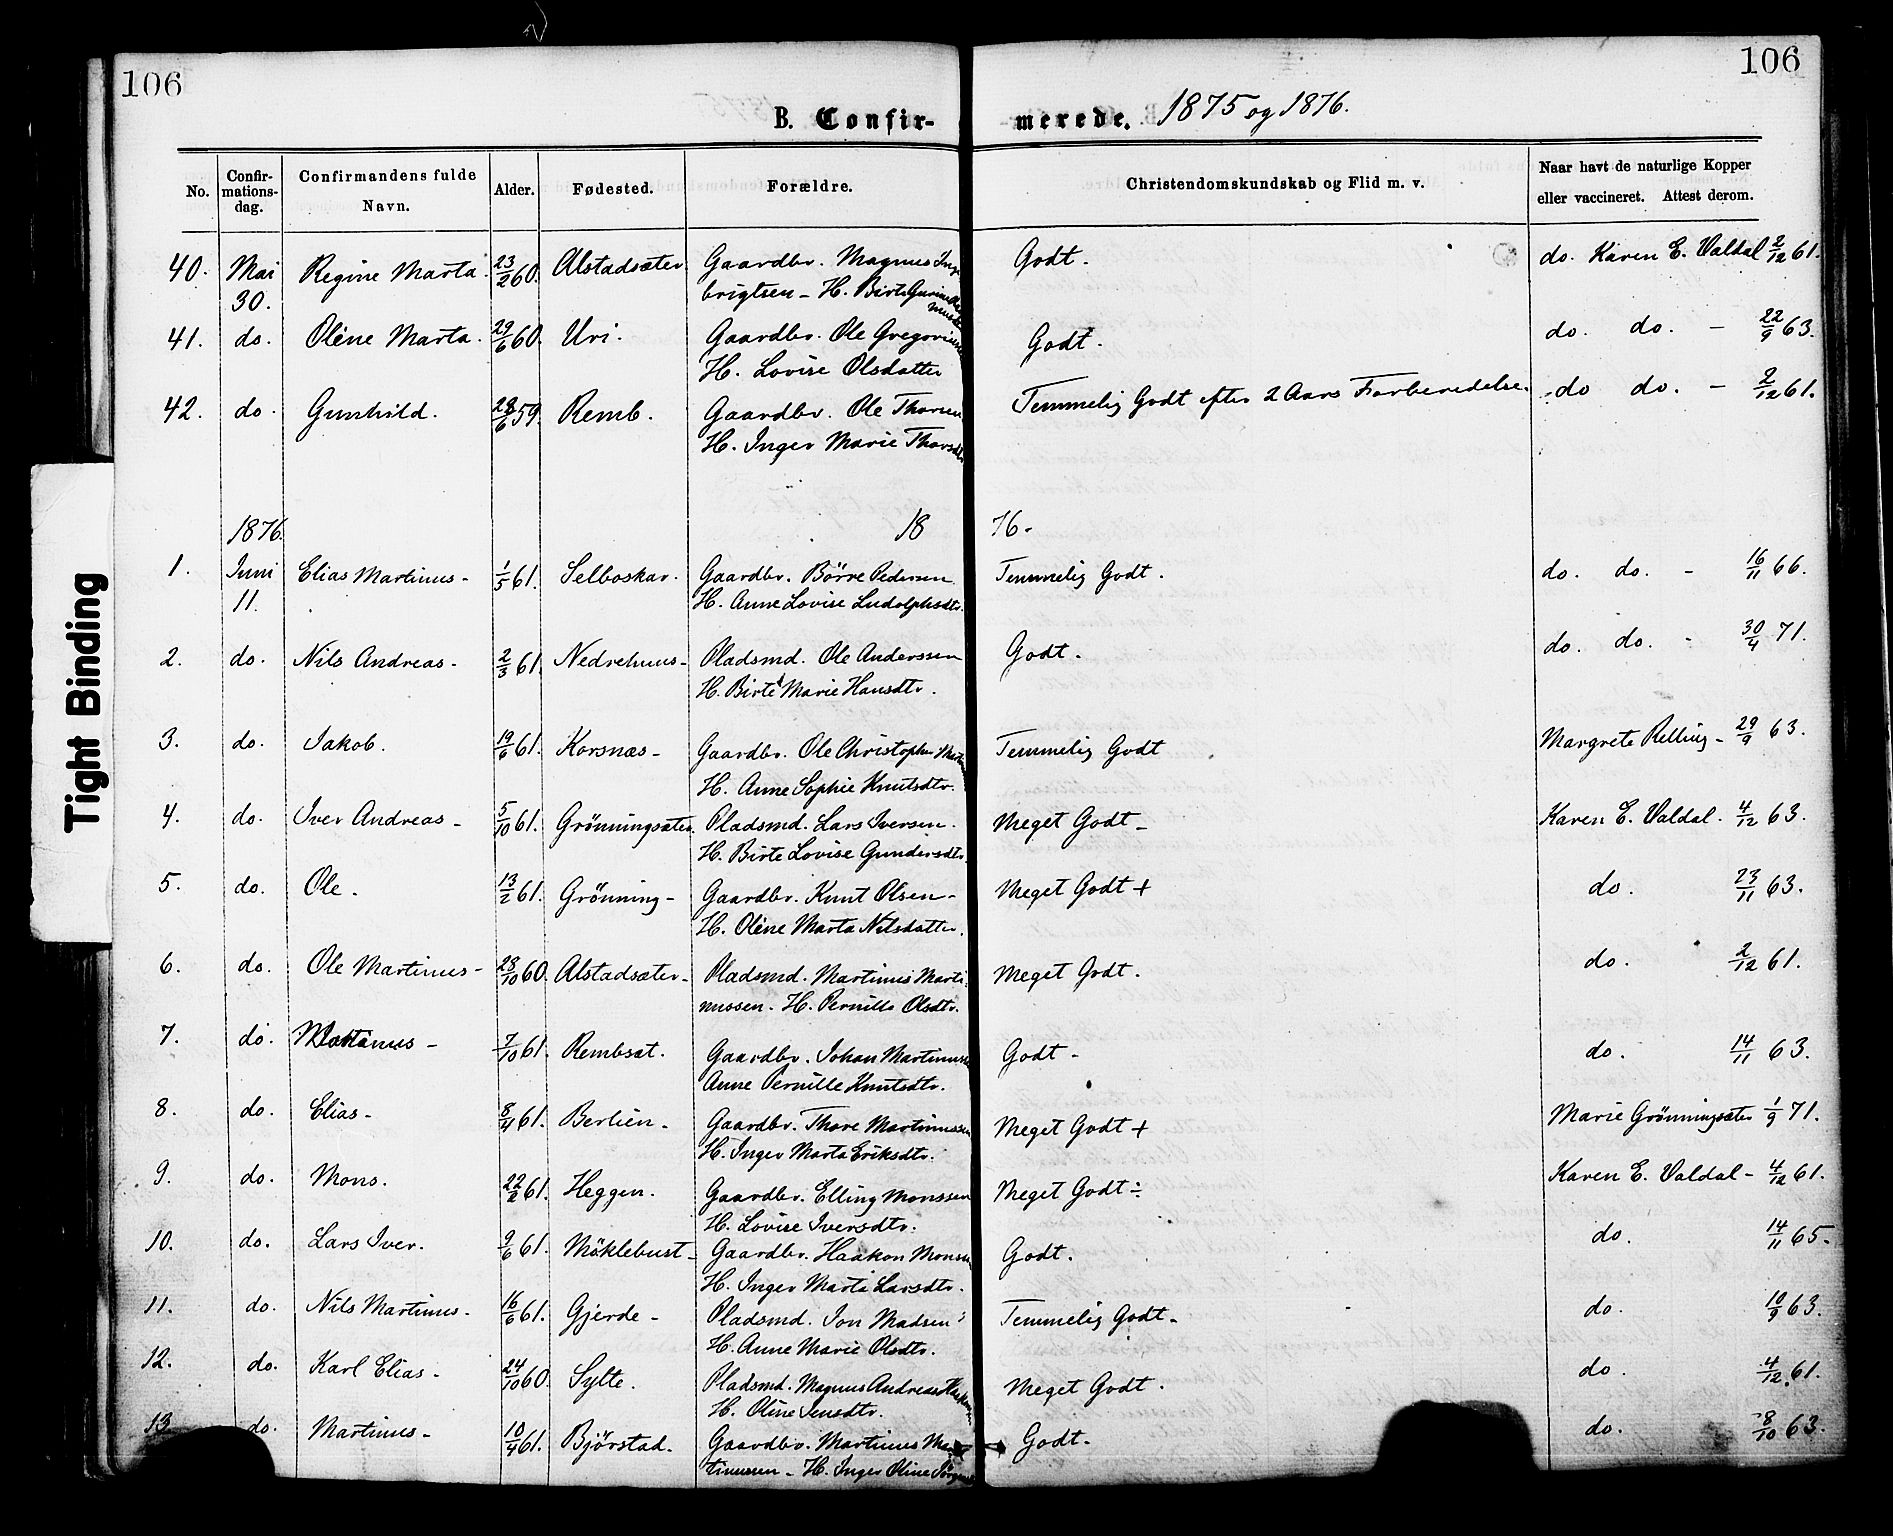 106
106
B. Confir-
merede. 1875 og 1876.
No.
Confir-
mations-
dag.
Confirmandens fulde
Navn.
Alder.
Fødested.
Forældre.
Christendomskundskab og Flid m. v.
Naar havt de naturlige Kopper
eller vaccineret. Attest derom.
40. Mai Regine Marta. 23/2 60. Alstadsæter Gaardbr. Magnus Inge Godt. do. Karen E. Valdal 2/12 61.
30. brigtsen - H. Birte
41. do. Oline Marta. 29/6 60. Uri. Gaardbr. Ole Godt. do. do. - 22/9 63.
H. Lovise Olsdatter
42. do. Gunhild. 28/6 59. Remb. Gaardbr. Ole Thorsen Temmelig Godt efter 2 Aars Forberedelse. do do. - 2/12 61.
H. Inger Marie Thorsdtr
1876. 18 76.
1. Juni Elias Martinus - 1/5 61. Selboskar. Gaardbr. Börre Pedersen Temmelig Godt. do. do. - 16/11 66.
11. H. Anne Lovise Ludolphsdtr.
2. do. Nils Andreas - 2/3 61. Nedrehuus - Pladsmd. Ole Anderssen Godt. do. do. - 30/4 71.
H. Birte Marie Hansdtr.
3. do. Jakob. 19/6 61. Korsnæs - Gaardbr. Ole Temmelig Godt Margrete Relling - 29/9 63.
H. Anne Sophie Knutsdtr.
4. do. Iver Andreas - 5/10 61. Grönningsæter. Pladsmd. Lars Iversen. Meget Godt - Karen E. Valdal. 4/12 63.
H. Birte Lovise Gundersdtr.
5. do. Ole. 13/2 61. Grönning - Gaardbr. Knut Olsen - Meget Godt + do. 23/11 63.
H. Oline Marta Nilsdatter.
6. do. Ole Martinus - 23/10 60. Alstadsæter - Pladsmd. Martinus Marti- Meget Godt. do. 2/12 61.
nussen - H. Pernille Olsdtr.
7. do. Martinus - 7/10 61. Rembsæt. Gaardbr. Johan Martinussen Godt - do. 14/11 63.
Anne Pernille Knutsdtr.
8. do. Elias - 8/4 61. Berlien - Gaardbr. Thore Martinussen Meget Godt + Marie Grönningsæter 1/9 71.
H. Inger Marta Eriksdtr.
9. do. Mons. 22/2 61. Heggen. Gaardbr. Elling Monssen Meget Godt ÷ Karen E. Valdal - 4/12 61.
H. Lovise Iversdtr.
10. do. Lars Iver. 9/6 61. Möklebust - Gaardbr. Haakon Monsen Godt. do. 14/11 65.
H. Inger Marta Larsdtr.
11. do. Nils Martinus - 16/6 61. Gjerde - Pladsmd. Jon Madsen Temmelig Godt - do. 10/9 63.
H. Anne Marie Olsdtr.
12. do. Karl Elias - 24/10 60. Sylte. Pladsmd. Magnus Andreas Meget Godt. do. 4/12 61.
H. Oline Jensdtr.
13. do. Martinus - 10/4 61. Bjørstad. Gaardbr. Martinus Godt - do. 8/10 63.
tinussen - H. Inger Oline
Tight Binding